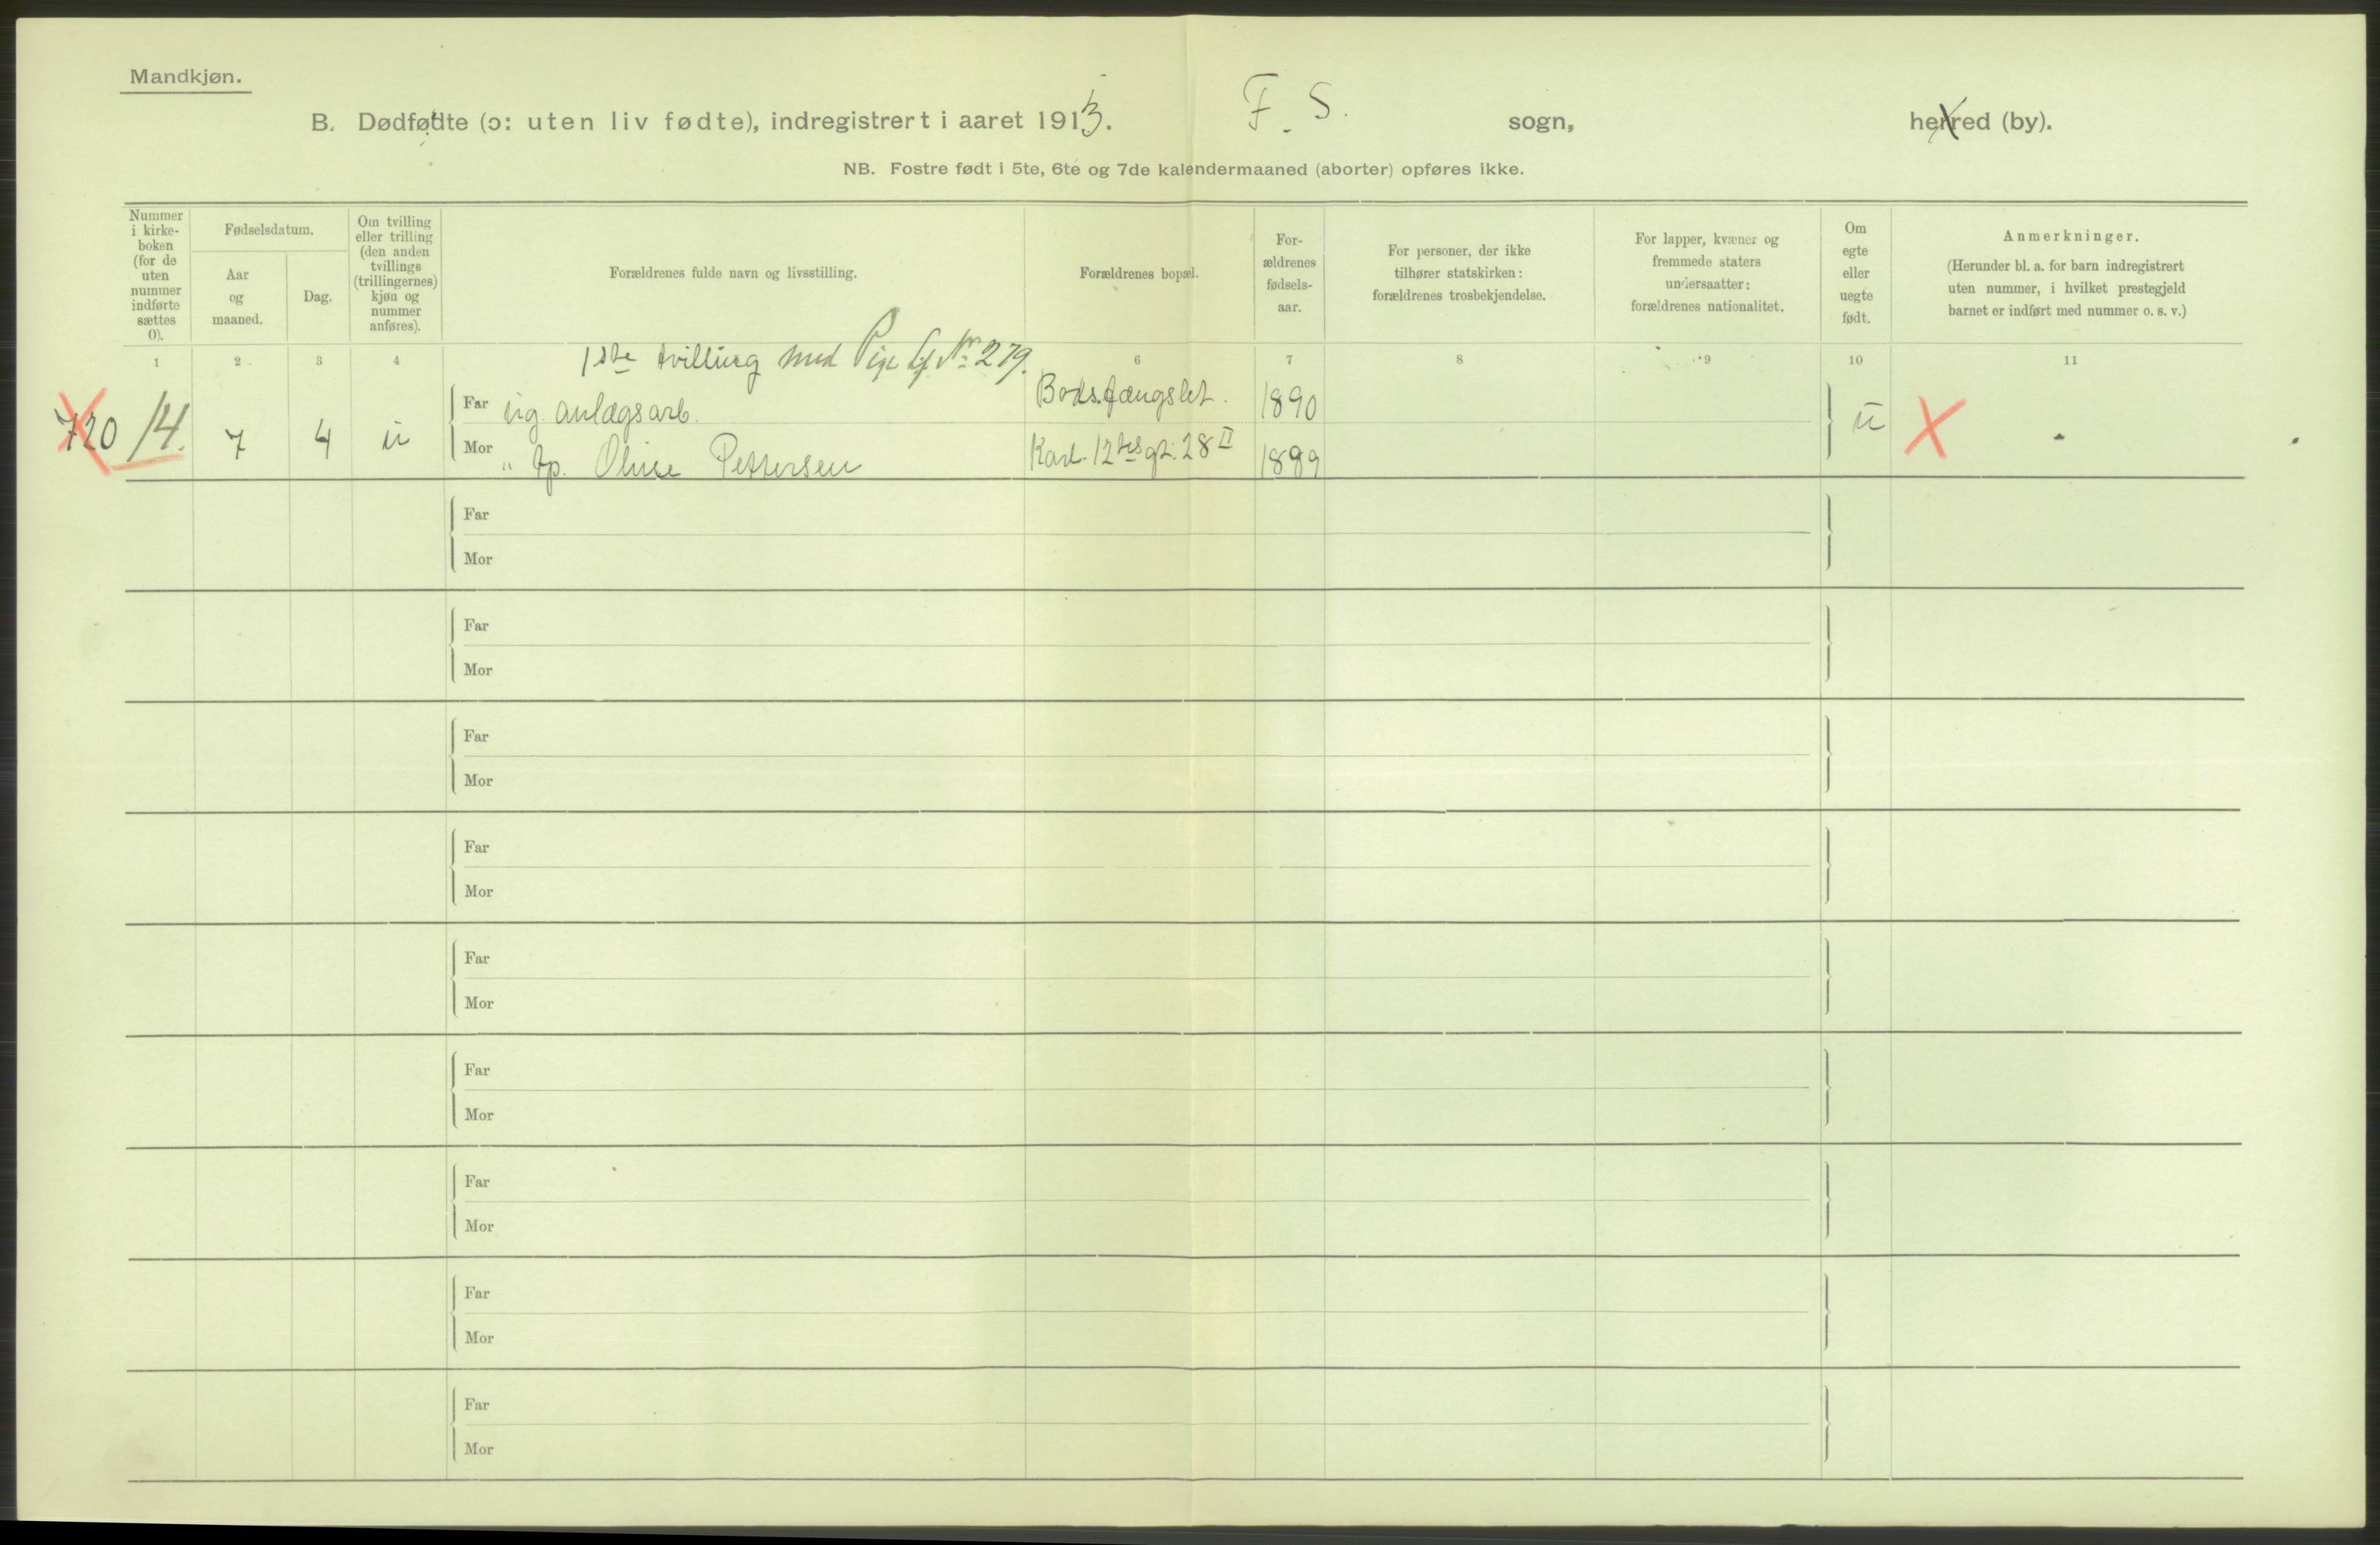 Mandkjøn.
B. Dødfødte (ɔ: uten liv fødte), indregistrert i aaret 1913. F. S. sogn, herred (by).
NB. Fostre født i 5te, 6te og 7de kalendermaaned (aborter) opføres ikke.
Nummer i kirke-boken (for de uten nummer indførte sættes 0).
Fødselsdatum.
Aar og maaned.
Dag.
Om tvilling eller trilling (den anden tvillings (trillingernes) kjøn og nummer anføres).
Forældrenes fulde navn og livsstilling.
Forældrenes bopæl.
For-ældrenes fødsels-aar.
For personer, der ikke tilhører statskirken: forældrenes trosbekjendelse.
For lapper, kvæner og fremmede staters undersaatter: forældrenes nationalitet.
Om egte eller uegte født.
Anmerkninger.
(Herunder bl. a. for barn indregistrert uten nummer, i hvilket prestegjeld barnet er indført med nummer o. s. v.)
1 2 3 4 6 7 8 9 10 11
1ste tvilling med Pige Nr 279.
Far ug. anlægsarb. Bodsfængslet. 1890
720 14. 7 4 u u
Mor " Oline Pettersen Karl 12tes gt. 28 II
Far
Mor
Far
Mor
Far
Mor
Far
Mor
Far
Mor
Far
Mor
Far
Mor
Far
Mor
Far
Mor